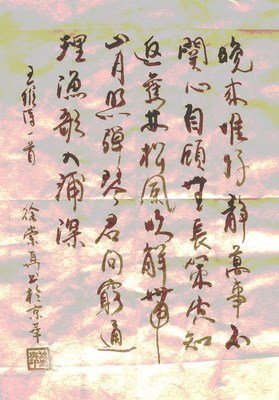 晚年惟好静萬事不
關心自顧無長策空知
返舊林松風吹解帶
山月照彈琴君问窮通
理漁歌入浦深
王維詩一首
徐崇真书於京華